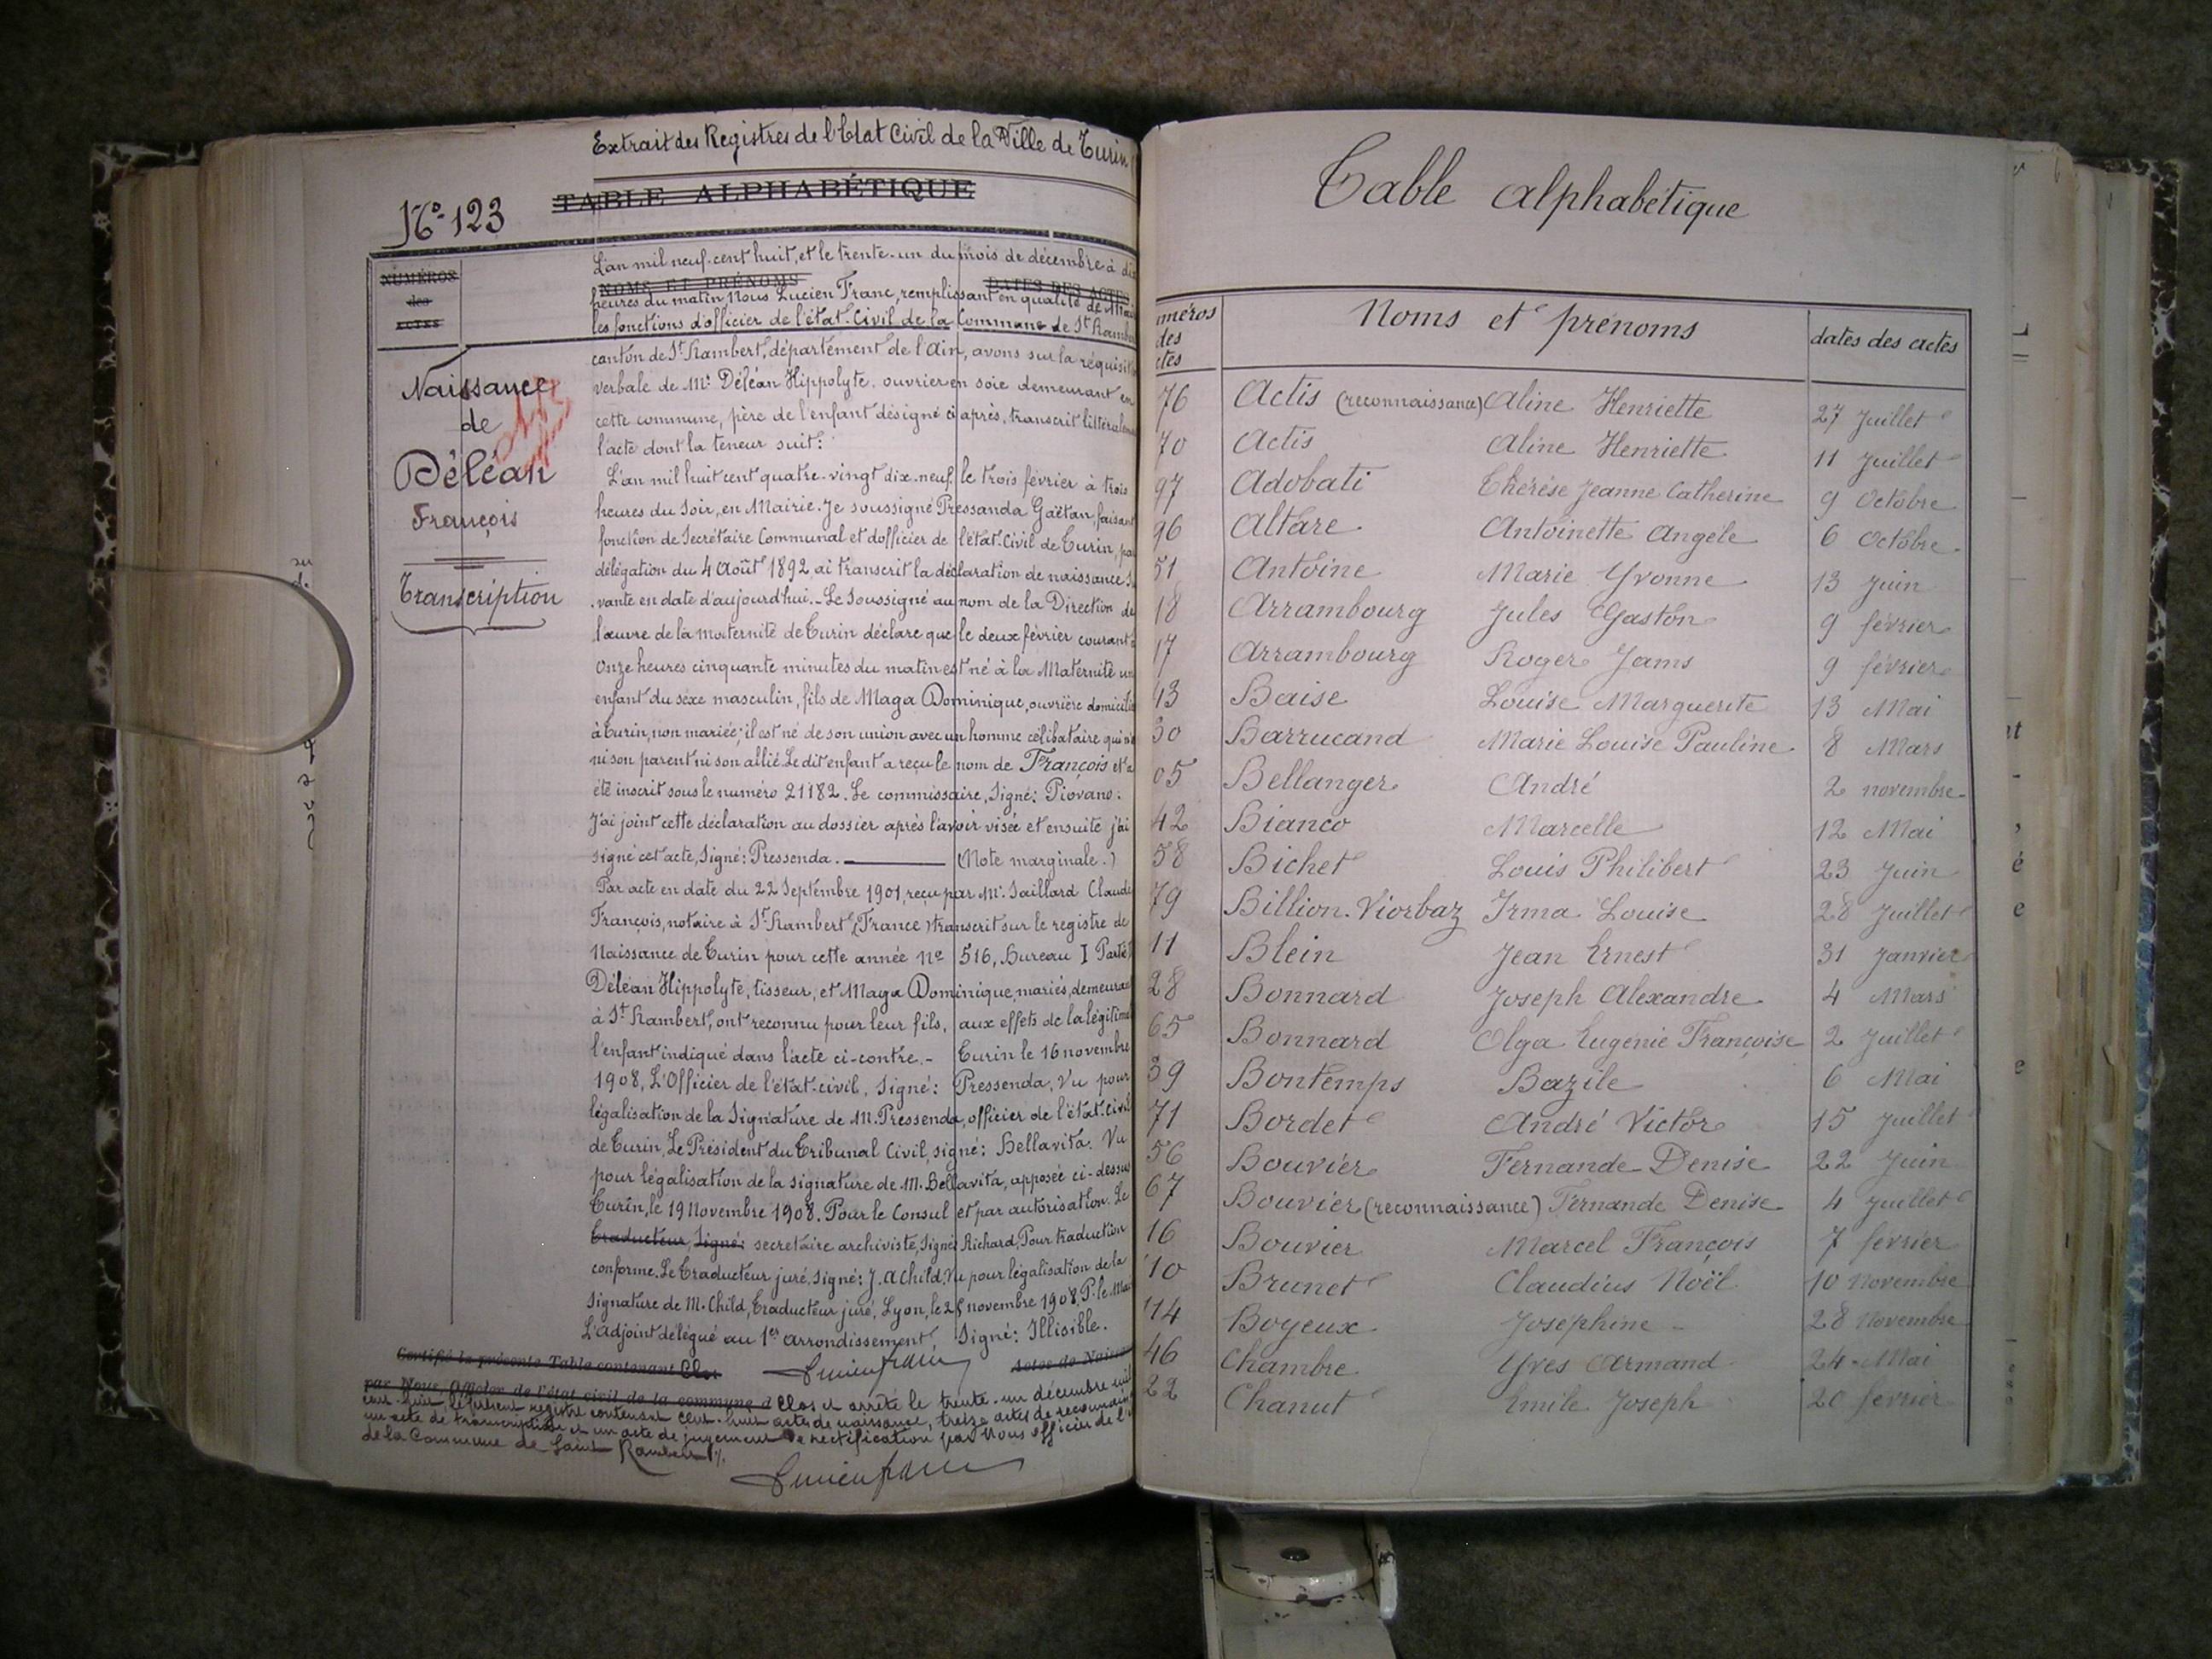 Extrait des Registres de l'Etat Civil de la Ville de Turin
TABLE ALPHABÉTIQUE
No 123
NUMÉROS
des
ACTES
NOMS ET PRÉNOMS
DATES DES ACTES
Naissance
de
Déléan
François
Transcription
L'an mil neuf cent huit, et le trente-un du mois de décembre à
heures du matin, Nous Lucien Franc, remplissant en qualité de
les fonctions d'officier de l'état-Civil de la Commune de St
canton de St Rambert, département de l'Ain, avons sur la
verbale de Mr Déléan Hippolyte, ouvrier en soie demeurant en
cette commune, père de l'enfant désigné ci après, transcrit
l'acte dont la teneur suit:
L'an mil huit cent quatre-vingt dix-neuf, le trois février à trois
heures du Soir, en Mairie. Je soussigné Pressanda Gaëtan, faisant
fonction de Secrétaire Communal et d'officier de l'état-Civil de Turin,
délégation du 4 Août 1892, ai transcrit la déclaration de naissance
vante en date d'aujourd'hui.- Le Soussigné au nom de la Direction de
l'œuvre de la maternité de Turin déclare que le deux février courant
Onze heures cinquante minutes du matin est né à la Maternité un
enfant du sexe masculin, fils de Maga Dominique, ouvrière
à Turin, non mariée; il est né de son union avec un homme célibataire qui
ni son parent ni son allié. Le dit enfant a reçu le nom de François et a
été inscrit sous le numéro 21182. Le commissaire, Signé: Piovano:
J'ai joint cette déclaration au dossier après l'avoir visée et ensuite j'ai
signé cet acte, Signé: Pressenda. (Note marginale.)
Par acte en date du 22 Septembre 1901, reçu par Mr. Saillard Claude
François, notaire à St Rambert (France) transcrit sur le registre de
Naissance de Turin pour cette année No 516, Bureau I
Déléan Hippolyte, tisseur, et Maga Dominique, mariés,
à St Rambert, ont reconnu pour leur fils, aux effets de la
l'enfant indiqué dans l'acte ci-contre.- Turin le 16 novembre
1908, L'Officier de l'état-civil, Signé: Pressenda. Vu pour
légalisation de la Signature de M. Pressenda, officier de l'état civil
de Turin, Le Président du Tribunal Civil, signé: Bellavita. Vu
pour légalisation de la signature de M. Bellavita, apposée ci-dessus
Turin, le 19 Novembre 1908. Pour le Consul et par autorisation. Le
Traducteur, Signé: secretaire archiviste, Signé Richard, Pour traduction
conforme. Le Traducteur juré, Signé: J. A Child. Vu pour légalisation de la
Signature de M. Child, Traducteur juré, Lyon, le novembre 1908, P. le
L'adjoint délégué au 1er arrondissement Signé: Illisible.
Certifié la présente Table contenant
par Nous, Officier de l'état civil de la commune d Clos et arrêté le trente-un décembre mil
cent-huit, le présent registre contenant cent-huit actes de naissance, treize actes de
un acte de transcription et un acte de jugement de rectification par Nous officier de
de la Commune de Saint Rambert
Table alphabétique
méros
des
ctes
Noms et prénoms
dates des actes
76 Actis (reconnaissance) Aline Henriette 27 Juillet
70 Actis Aline Henriette 11 Juillet
97 Adobati Thérèse Jeanne Catherine 9 Octobre
96 Altare Antoinette Angèle 6 Octobre
51 Antoine Marie Yvonne 13 Juin
18 Arrambourg Jules Gaston 9 février
17 Arrambourg Roger Jams 9 février
43 Baise Louise Marguerite 13 Mai
30 Barrucand Marie Louise Pauline 8 Mars
05 Bellanger André 2 novembre
42 Bianco Marcelle 12 Mai
58 Bichet Louis Philibert 23 Juin
79 Billion-Viorbaz Irma Louise 28 Juillet
11 Blein Jean Ernest 31 Janvier
28 Bonnard Joseph Alexandre 4 Mars
65 Bonnard Olga Eugenie Françoise 2 Juillet
39 Bontemps Bazile 6 Mai
71 Bordet André Victor 15 Juillet
56 Bouvier Fernande Denise 22 Juin
67 Bouvier (reconnaissance) Fernande Denise 4 Juillet
16 Bouvier Marcel François 7 février
10 Brunet Claudius Noël 10 Novembre
14 Boyeux Josephine 28 Novembre
46 Chambre Yves Armand 24 Mai
22 Chanut Emile Joseph 20 fevrier